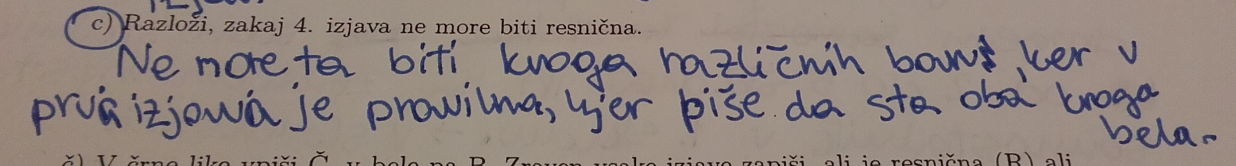 c) Razloži, zakaj 4. izjava ne more biti resnična.
Ne moreta biti kroga različnih barv, ker v
prva izjava je pravilna, kjer piše da sta oba kroga
bela.
č) V črne like vpiši Č, v bele pa B. Zraven vsake izjave zapiši, ali je resnična (R) ali